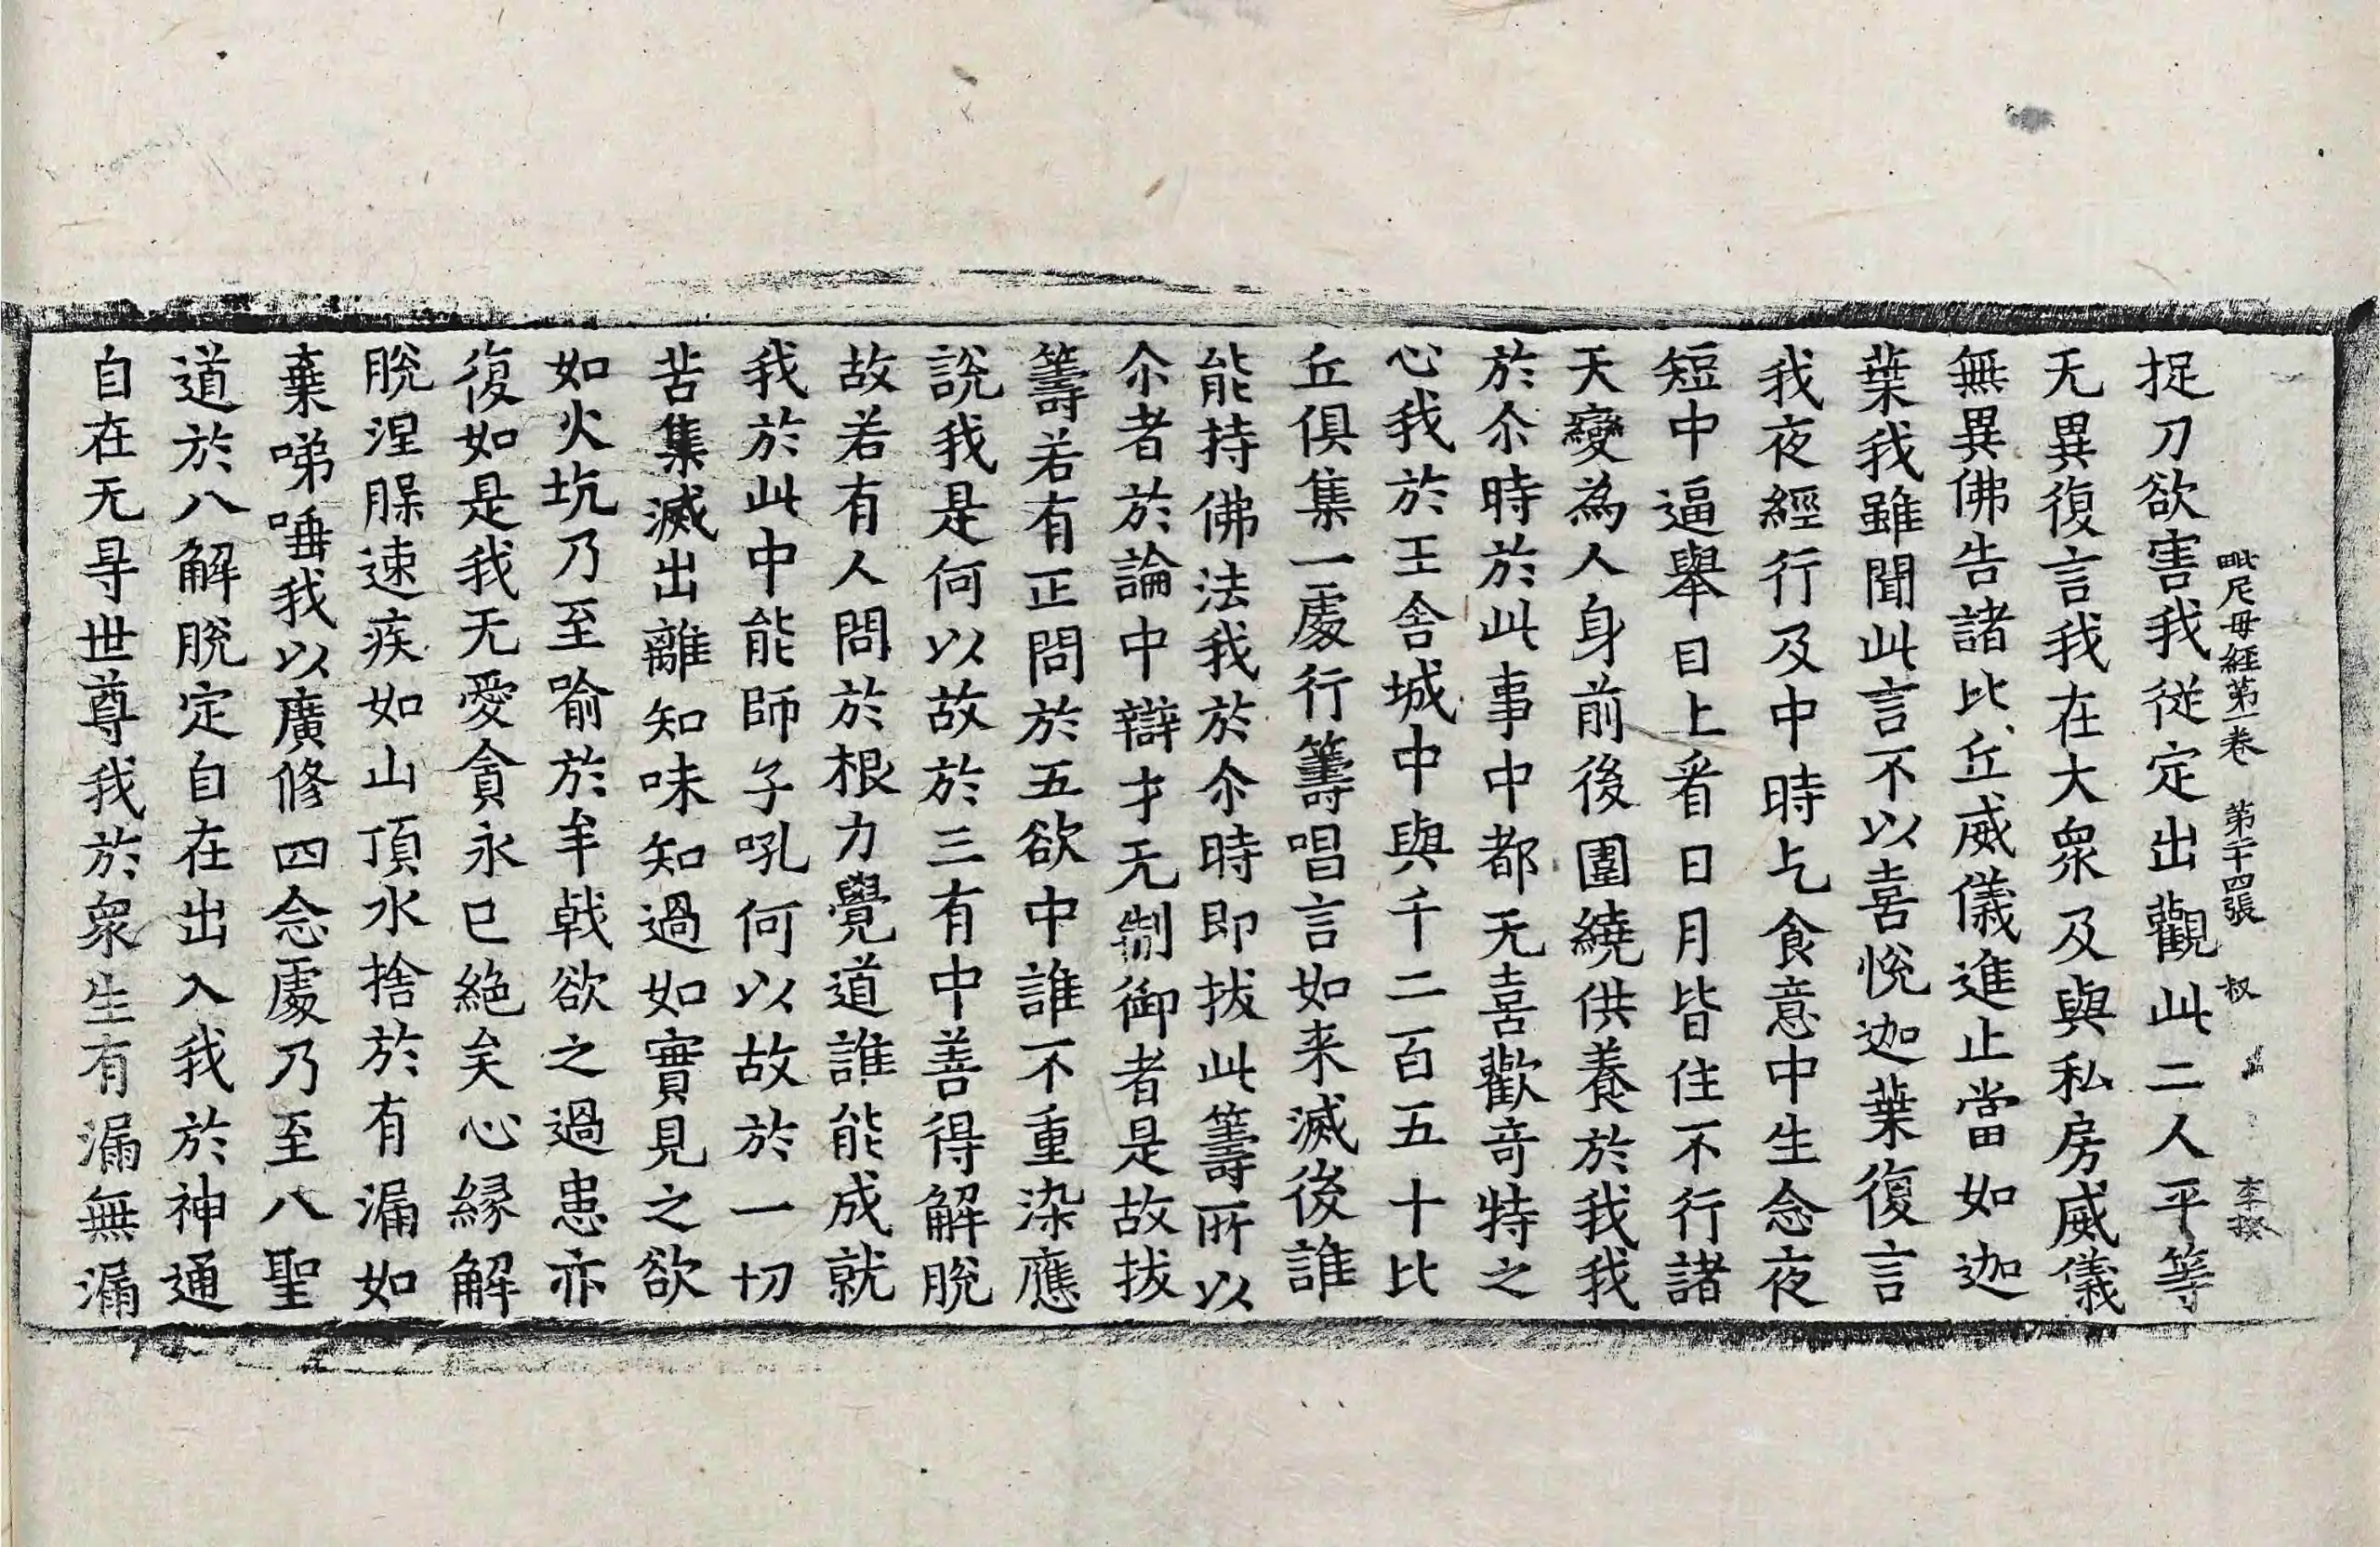 毗尼母經第一卷 第二十四張 叔 李揆
捉刀欲害我從定出觀此二人平等
无異復言我在大衆及與私房威儀
無異佛告諸比丘威儀進止當如迦
葉我雖聞此言不以喜悅迦葉復言
我夜經行及中時乞食意中生念夜
短中逼舉目上看日月皆住不行諸
天變為人身前後圍繞供養於我我
於尒時於此事中都无喜歡竒特之
心我於王舍城中與千二百五十比
丘俱集一處行籌唱言如来滅後誰
能持佛法我於尒時即拔此籌所以
尒者於論中辯才无制御者是故拔
籌若有正問於五欲中誰不重染應
說我是何以故於三有中善得解脫
故若有人問於根力覺道誰能成就
我於此中能師子吼何以故於一切
苦集滅出離知味知過如實見之欲
如火坑乃至喻於牟戟欲之過患亦
復如是我无愛貪永已絕矣心縁解
脫涅槃速疾如山頂水捨於有漏如
棄唾我以廣修四念處乃至八聖
道於八解脫定自在出入我於神通
自在无㝵世尊我於衆生有漏無漏